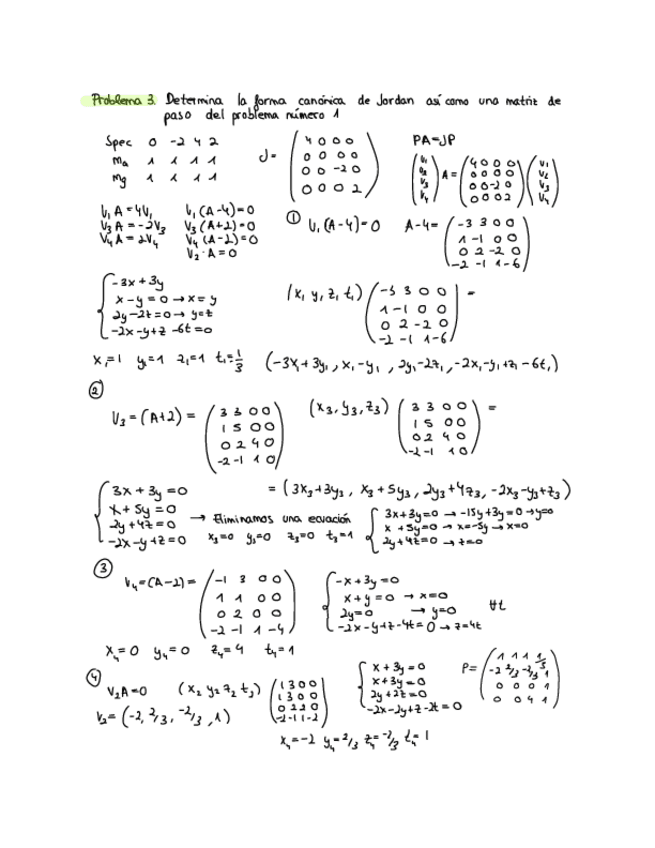 Problema 3. Determina la forma canónica de Jordan así como una matriz de
paso del problema número 1
Spec 0 -2 4 2
ma 1 1 1 1
mg 1 1 1 1
J= (4 0 0 0
0 0 0 0
0 0 -2 0
0 0 0 2)
PA=JP
(v1 v2 v3 v4) A = (4 0 0 0
0 0 0 0
0 0 -2 0
0 0 0 2) (v1 v2 v3 v4)
V1 A = 4V1 V1 (A-4)=0
V3 A = -2V3 V3 (A+2)=0
V4 A = 2V4 V4 (A-2)=0
V2 · A = 0
① V1 (A-4)=0 A-4= (-3 3 0 0
1 -1 0 0
0 2 -2 0
-2 -1 1 -6)
-3x + 3y
x - y = 0 → x = y
2y - 2z = 0 → y=z
-2x - y + z - 6t = 0
(x, y, z, t,) (-3 3 0 0
1 -1 0 0
0 2 -2 0
-2 -1 1 -6) =
x1=1 y1=1 z1=1 t1=1/3 (-3x1+3y1, x1-y1, 2y1-2z1, -2x1-y1+z1-6t1)
②
V3 = (A+2) = (3 3 0 0
1 5 0 0
0 2 4 0
-2 -1 1 0)
(x3, y3, z3) (3 3 0 0
1 5 0 0
0 2 4 0
-2 -1 1 0) =
= (3x3+3y3, x3+5y3, 2y3+4z3, -2x3-y3+z3)
3x + 3y = 0
x + 5y = 0
2y + 4z = 0
-2x - y + z = 0
→ Eliminamos una ecuación
x3=0 y3=0 z3=0 t3=1
3x+3y=0 → -15y+3y=0 → y=0
x + 5y=0 → x=-5y → x=0
2y+4z=0 → z=0
③
V4 = (A-2) = (-1 3 0 0
1 1 0 0
0 2 0 0
-2 -1 1 -4)
-x + 3y = 0
x + y = 0 → x=0
2y = 0 → y=0 ∀t
-2x - y + z - 4t = 0 → z=4t
x4=0 y4=0 z4=4 t4=1
④
V2A=0 (x2 y2 z2 t2) (1 3 0 0
1 3 0 0
0 2 2 0
-2 -1 1 -2)
x + 3y = 0
x + 3y = 0
2y + 2z = 0
-2x - 2y + z - 2t = 0
P= (1 1 1 1/3
-2 2/3 -2/3 1
0 0 0 1
0 0 4 1)
V2 = (-2, 2/3, -2/3, 1)
x4=-2 y4=2/3 z4=-2/3 t4=1